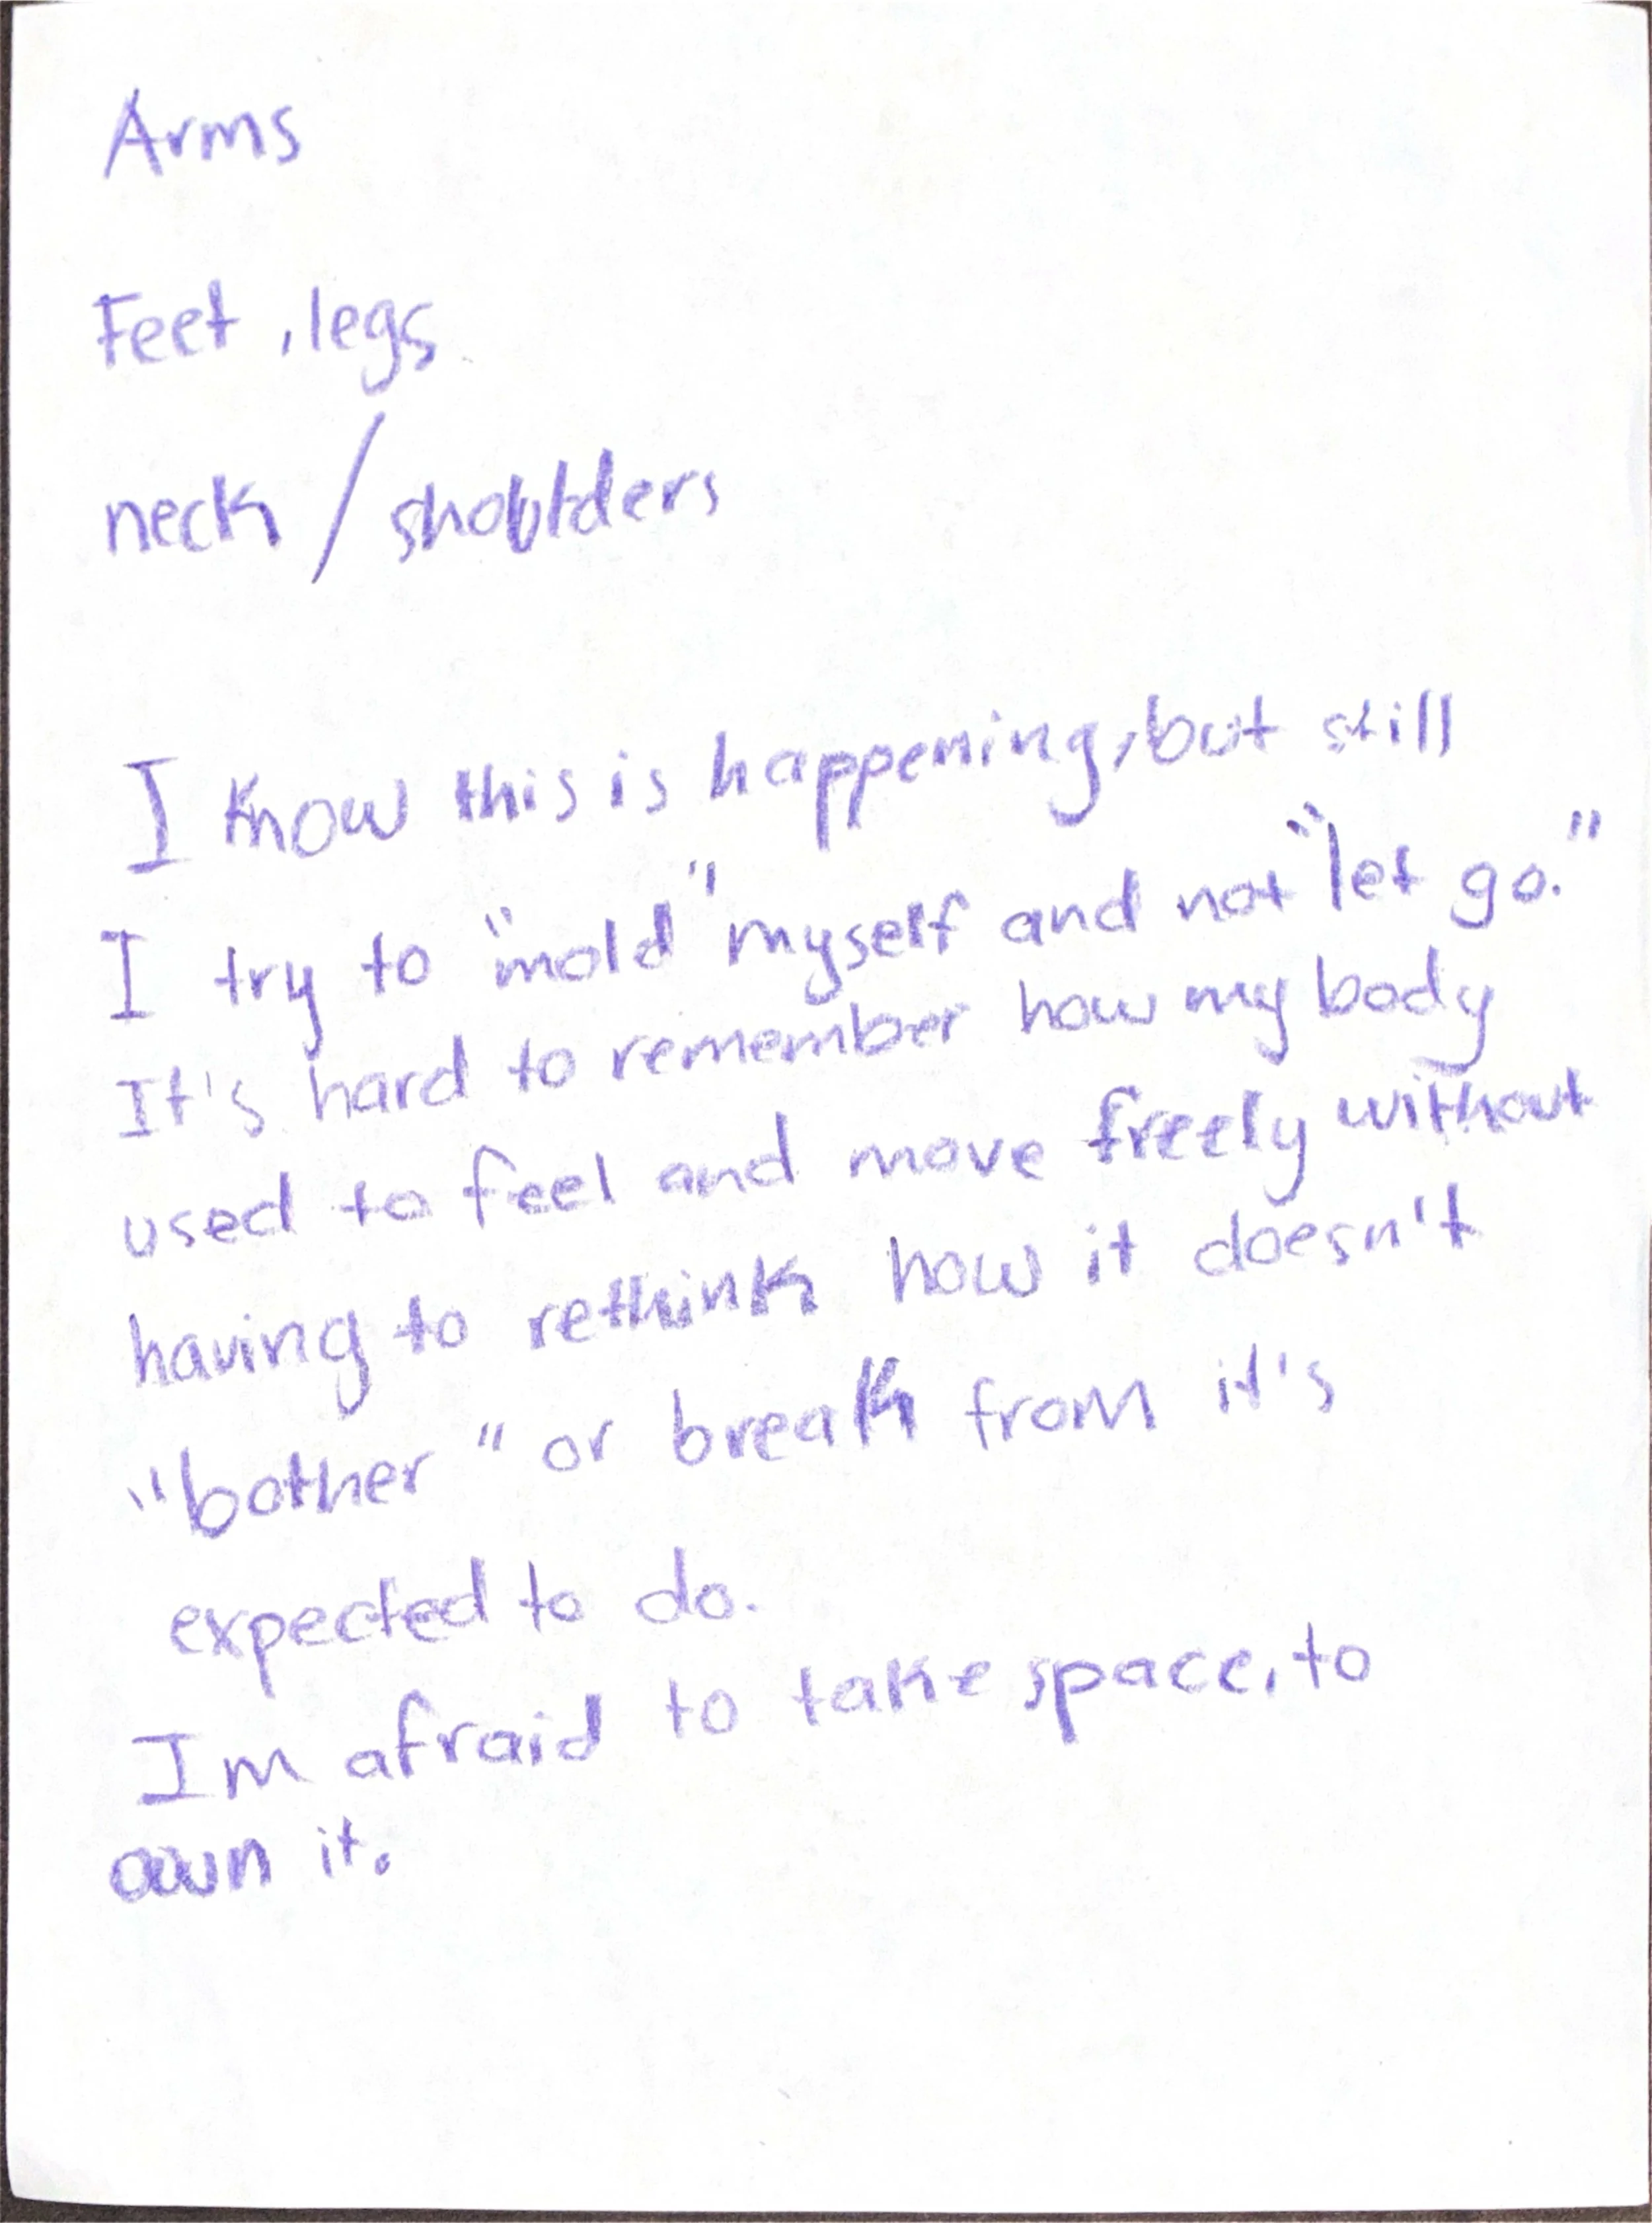 Arms
Feet, legs
neck / shoulders
I know this is happening, but still
I try to "mold" myself and not "let go."
It's hard to remember how my body
used to feel and move freely without
having to rethink how it doesn't
"bother" or break from it's
expected to do.
Im afraid to take space, to
own it.